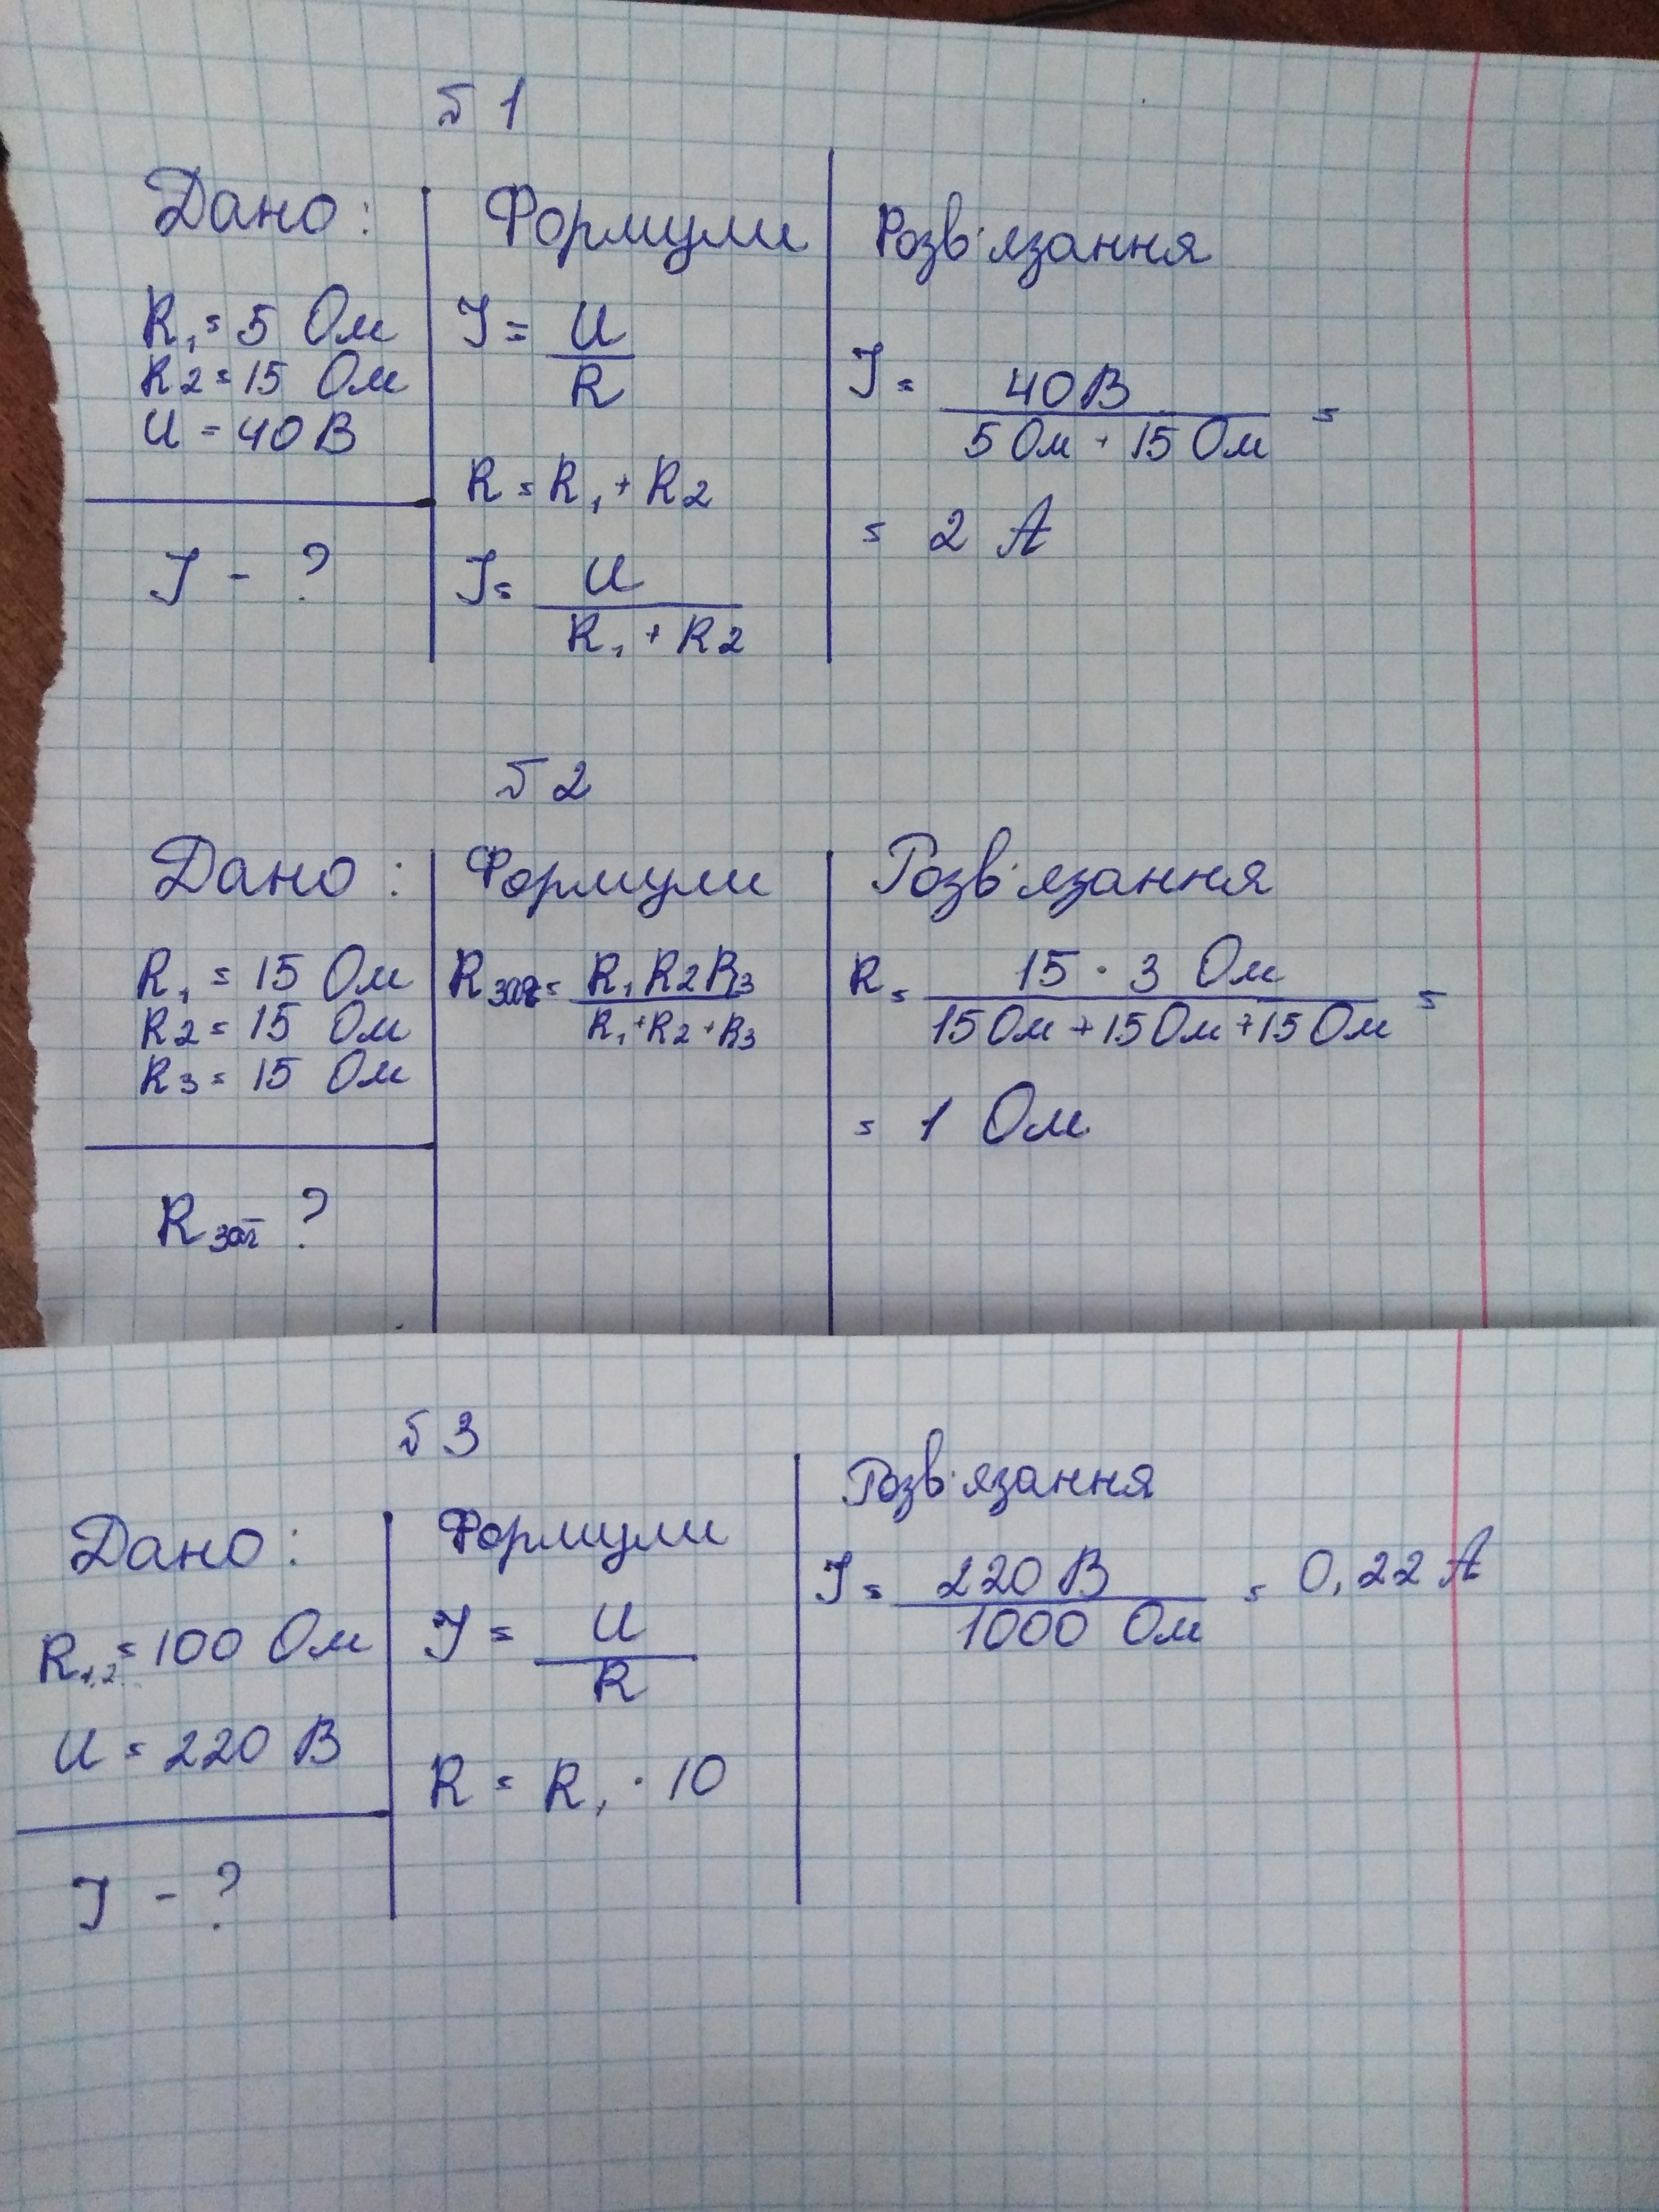 № 1
Дано:
R₁ = 5 Ом
R2 = 15 Ом
U = 40 В
I - ?
Формули
I = U / R
R = R₁ + R2
I = U / R₁ + R2
Розв'язання
I = 40 В / 5 Ом + 15 Ом =
= 2 А
№ 2
Дано:
R₁ = 15 Ом
R2 = 15 Ом
R3 = 15 Ом
Rзаг ?
Формули
Rзаг = R₁ R2 R3 / R₁ + R2 + R3
Розв'язання
R = 15 · 3 Ом / 15 Ом + 15 Ом + 15 Ом =
= 1 Ом
№ 3
Дано:
R₁,₂ = 100 Ом
U = 220 В
I - ?
Формули
I = U / R
R = R₁ · 10
Розв'язання
I = 220 В / 1000 Ом = 0,22 А